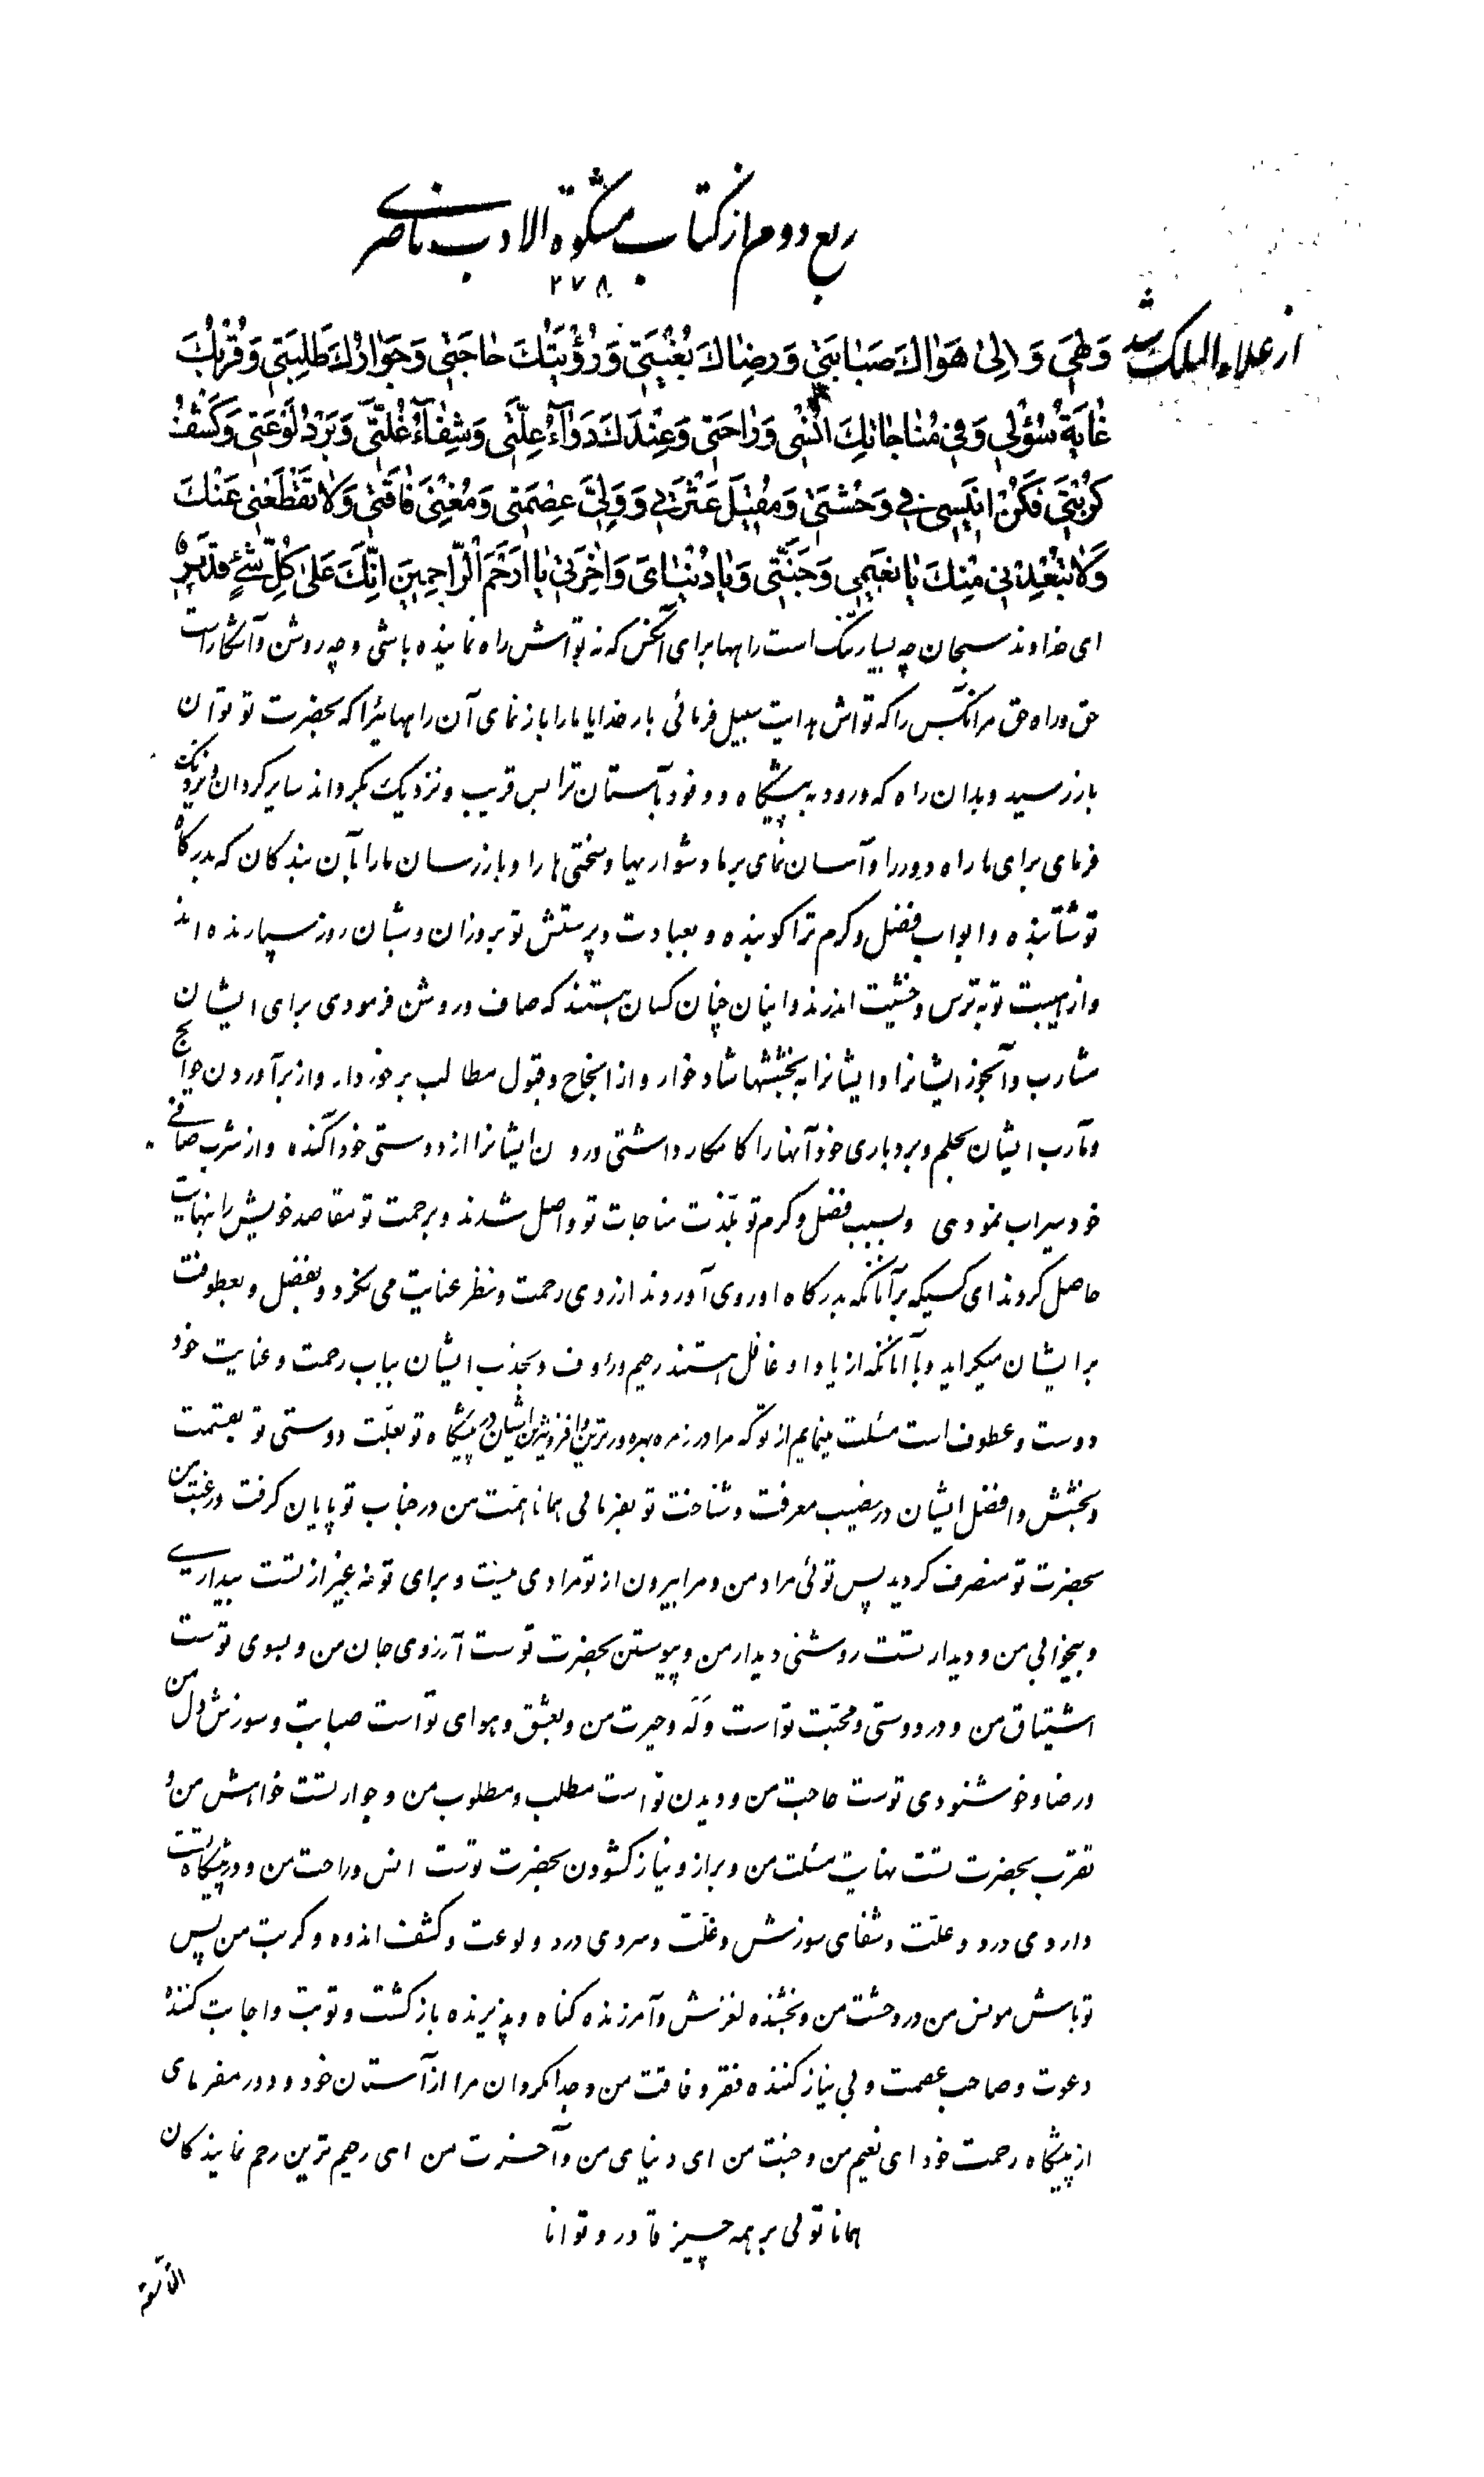 ربع دوم از کتاب مشکوة الادب ناصری
۲۷۸
از علاء الملک شد
وَهِیَ وَاِلیٰ هَوَاكَ صَبٰابَتیٖ وَرِضٰاكَ بُغْیَتیٖ وَرُؤْیَتُكَ حٰاجَتیٖ وَجَوٰارُكَ طَلِبَتیٖ وَقُرْبُكَ
غٰایَةُ سُؤْلیٖ وَفیٖ مُنٰاجٰاتِكَ اُنْسیٖ وَرٰاحَتیٖ وَعِنْدَكَ دَوٰآءُ عِلَّتیٖ وَشِفٰآءُ غُلَّتیٖ وَبَرْدُ لَوْعَتیٖ وَكَشْفُ
كُرْبَتیٖ فَكُنْ اَنیٖسیٖ فیٖ وَحْشَتیٖ وَمُقیٖلَ عَثْرَتیٖ وَوَلِیَّ عِصْمَتیٖ وَمُغْنِیَ فٰاقَتیٖ وَلٰا تَقْطَعْنیٖ عَنْكَ
وَلٰا تُبْعِدْنیٖ مِنْكَ یٰا نَعیٖمیٖ وَجَنَّتیٖ وَیٰا دُنْیٰایَ وَاٰخِرَتیٖ یٰا اَرْحَمَ الرّٰاحِمیٖنَ اِنَّكَ عَلیٰ كُلِّ شَیْءٍ قَدیٖرٌ
ای خداوند سبحان چه بسیار تنگ است راهها برای آنکس که نه تو اش راه نماینده باشی و چه روشن و آشکار است
حق و راه حق مر آنکس را که تو اش هدایت سبیل فرمائی بار خدایا ما را باز نمای آن راهها ئیرا که بحضرت تو توان
باز رسید و بدان راه که ورود به پیشگاه و وفود بآستان ترا بس قریب و نزدیک بگرداند سایر گردان و نزدیک
فرمای برای ما راه دور را و آسان نمای بر ما دشواریها و سختی ها را و باز رسان ما را بآن بندکان که بدرکاه
تو شتابنده و ابواب فضل و کرم ترا کوبنده و بعبادت و پرستش تو بروزان و شبان روز سپارنده اند
و از هیبت تو به ترس و خشیت اندرند و اینان چنان کسان هستند که صاف و روشن فرمودی برای ایشان
مشارب و آبخور ایشانرا و ایشانرا به بخششها شاد خوار و از انجاح و قبول مطالب برخوردار و از برآوردن حوائج
و مآرب ایشان بحلم و بردباری خود آنها را کامکار داشتی و درون ایشانرا از دوستی خود آکنده و از شرب صافی
خود سیراب نمودی و بسبب فضل و کرم تو بلذت مناجات تو واصل شدند و برحمت تو مقاصد خویش را بنهایت
حاصل کردند ای کسیکه بر آنانکه بدرکاه او روی آوردند از روی رحمت و نظر عنایت می نکرد و بفضل و بعطوفت
بر ایشان میکراید و با آنانکه از یاد او غافل هستند رحیم و رؤف و بجذب ایشان بباب رحمت و عنایت خود
دوست و عطوف است مسئلت مینمایم از تو که مرا در زمره بهره ورترین و افزونترین ایشان در پیشگاه تو بعلت دوستی تو بقسمت
و بخشش و افضل ایشان در نصیب معرفت و شناخت تو بفرمائی همانا همت من در جناب تو پایان کرفت و رغبت من
بحضرت تو منصرف کردید پس توئی مراد من و مرا بیرون از تو مرادی نیست و برای تو نه غیر از تست بیداری
و بیخوابی من و دیدار تست روشنی دیدار من و پیوستن بحضرت تو ست آرزوی جان من و بسوی تو ست
اشتیاق من و در دوستی و محبت تو است وَلَه و حیرت من و بعشق و هوای تو است صبابت و سوزش دل من
و رضا و خوشنودی توست حاجت من و دیدن تو است مطلب و مطلوب من و جوار تست خواهش من و
تقرب بحضرت تست نهایت مسئلت من و براز و نیاز کشودن بحضرت تو ست انس و راحت من و در پیشگاه تست
داروی درد و علت و شفای سوزش و غلت و سردی درد و لوعت و کشف اندوه و کربت من پس
تو باش مونس من در وحشت من و بخشنده لغزش و آمرزنده کناه و پذیرنده بازکشت و توبت و اجابت کننده
دعوت و صاحب عصمت و بی نیاز کننده فقر و فاقت من و جدا مکردان مرا از آستان خود و دور مفرمای
از پیشگاه رحمت خود ای نعیم من و جنت من ای دنیای من و آخرت من ای رحیم ترین رحم نمایندکان
همانا توئی بر همه چیز قادر و توانا